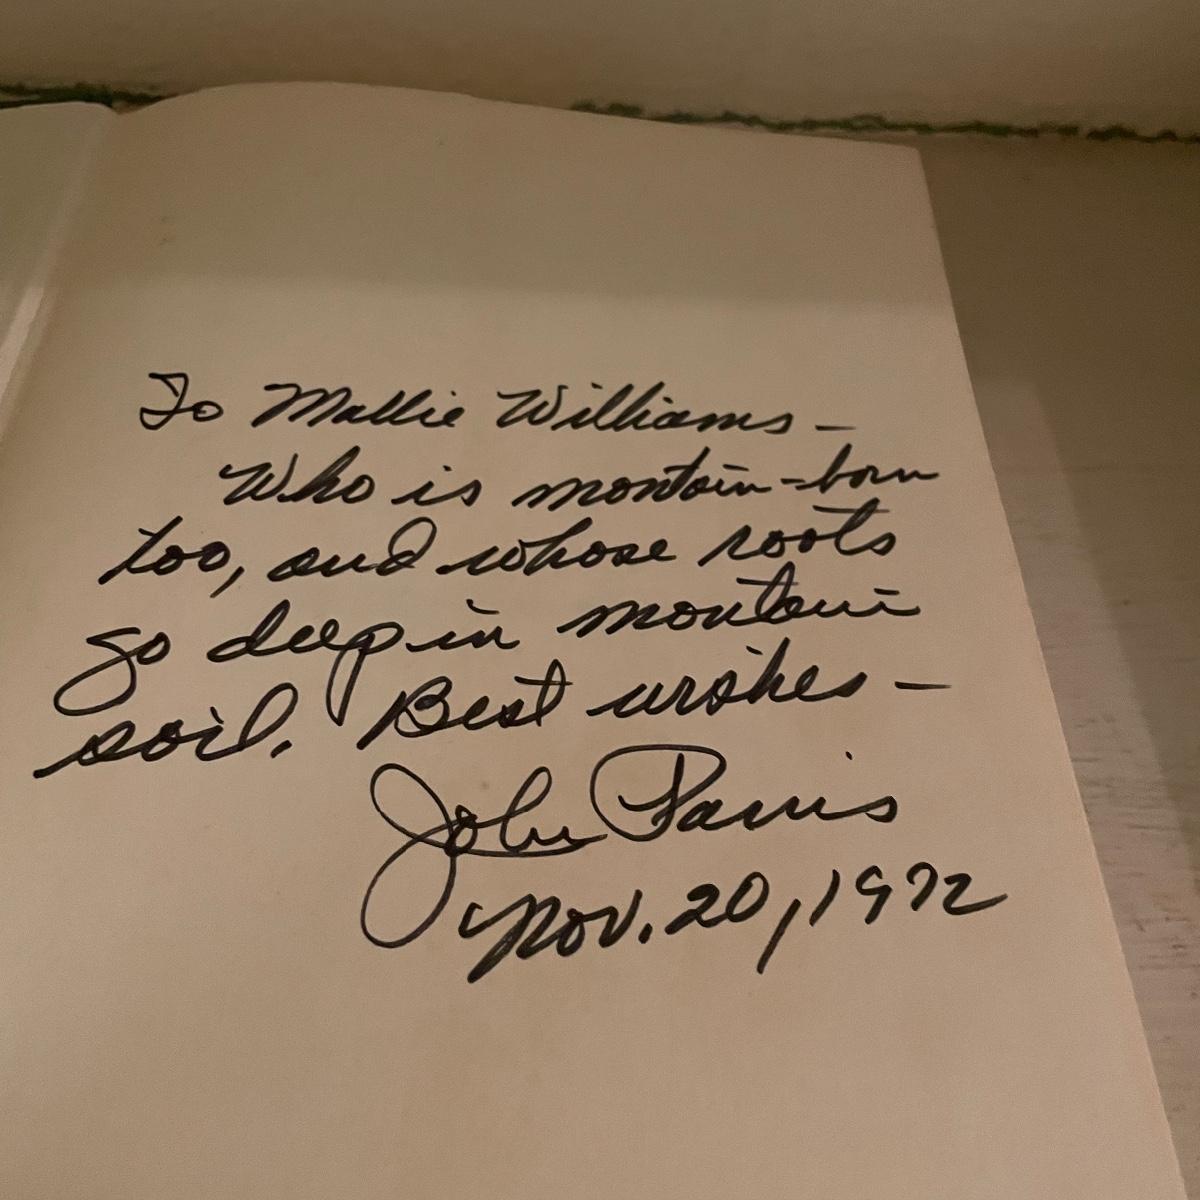 To Mallie Williams –
Who is montain-born
too, and whose roots
go deep in montain
soil. Best wishes –
John Parris
Nov. 20, 1972